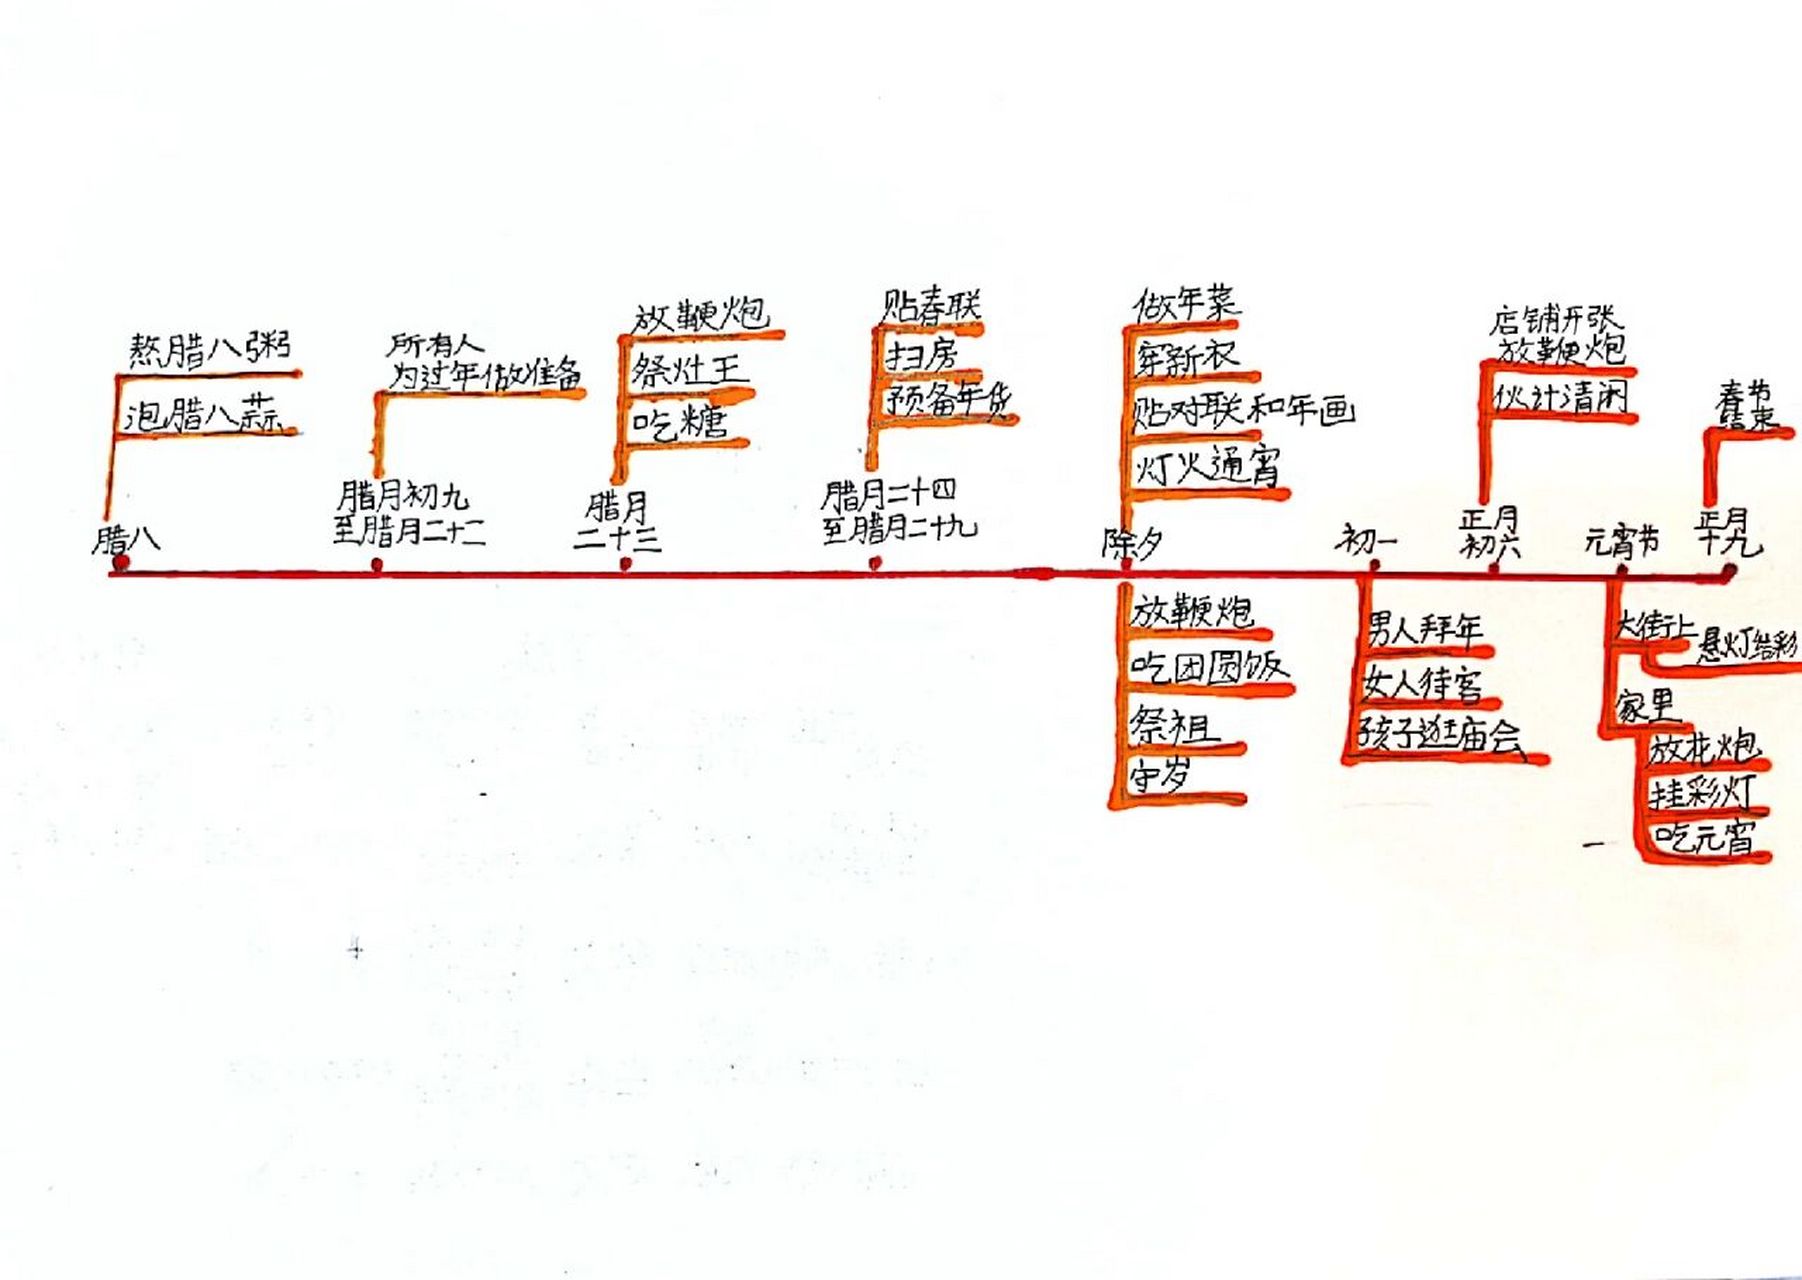 熬腊八粥
泡腊八蒜
腊八
所有人
为过年做准备
腊月初九
至腊月二十二
放鞭炮
祭灶王
吃糖
腊月
二十三
贴春联
扫房
预备年货
腊月二十四
至腊月二十九
做年菜
穿新衣
贴对联和年画
灯火通宵
除夕
放鞭炮
吃团圆饭
祭祖
守岁
初一
男人拜年
女人待客
孩子逛庙会
店铺开张
放鞭炮
伙计清闲
正月
初六
元宵节
大街上
悬灯结彩
家里
放花炮
挂彩灯
吃元宵
春节
结束
正月
十九